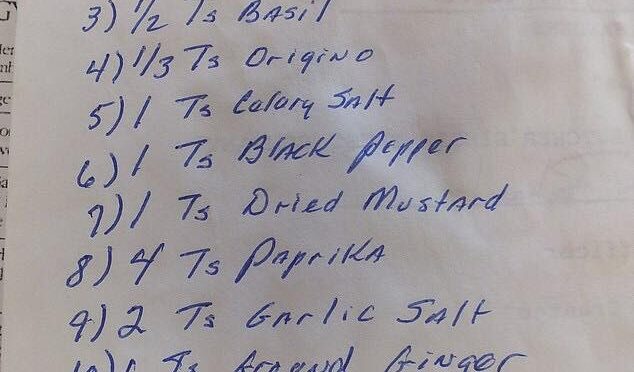 3) 1/2 Ts Basil
4) 1/3 Ts Origino
5) 1 Ts Celary Salt
6) 1 Ts Black Pepper
7) 1 Ts Dried Mustard
8) 4 Ts Paprika
9) 2 Ts Garlic Salt
10) 1 Ts Ground Ginger